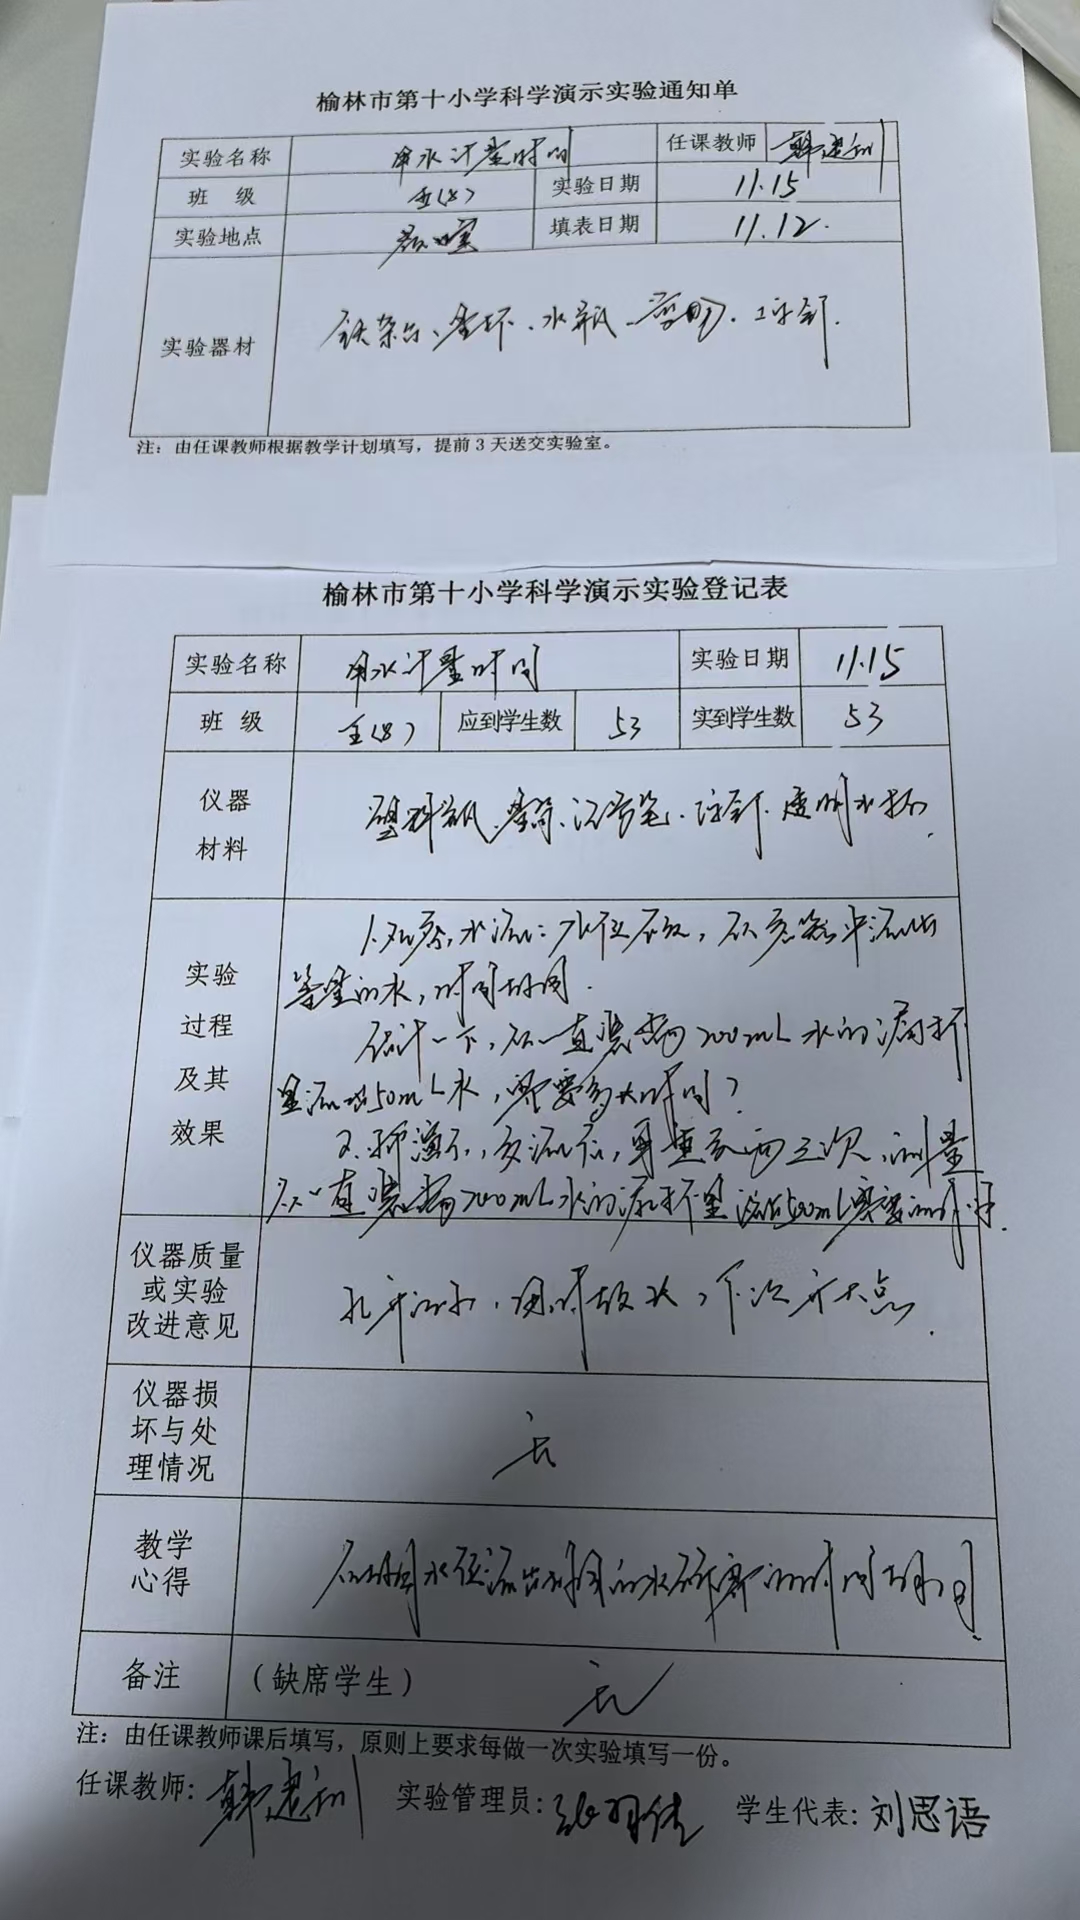 榆林市第十小学科学演示实验通知单
实验名称 用水计量时间 任课教师
班 级 五(8) 实验日期 11.15
实验地点 实验室 填表日期 11.12.
实验器材 铁架台、量杯、水瓶、剪刀、工字钉.
注：由任课教师根据教学计划填写，提前3天送交实验室。
榆林市第十小学科学演示实验登记表
实验名称 用水计量时间 实验日期 11.15
班 级 五(8) 应到学生数 53 实到学生数 53
仪器
材料
塑料瓶、量筒、记号笔、透明水杯.
实验
过程
及其
效果
1.观察水流：水位不变，
等量的水，时间相同.
估计一下，从一直装满200mL水的漏杯
里流出50mL水，需要多长时间？
2. 演示，交流后，再重复两三次，测量
从一直装满200mL水的漏杯里流出50mL需要的时间.
仪器质量
或实验
改进意见
孔开的小，用时较长，下次开大点.
仪器损
坏与处
理情况
无
教学
心得
水位流出相同的水所需的时间相同.
备注 （缺席学生） 无
注：由任课教师课后填写，原则上要求每做一次实验填写一份。
任课教师： 实验管理员： 学生代表：刘思语